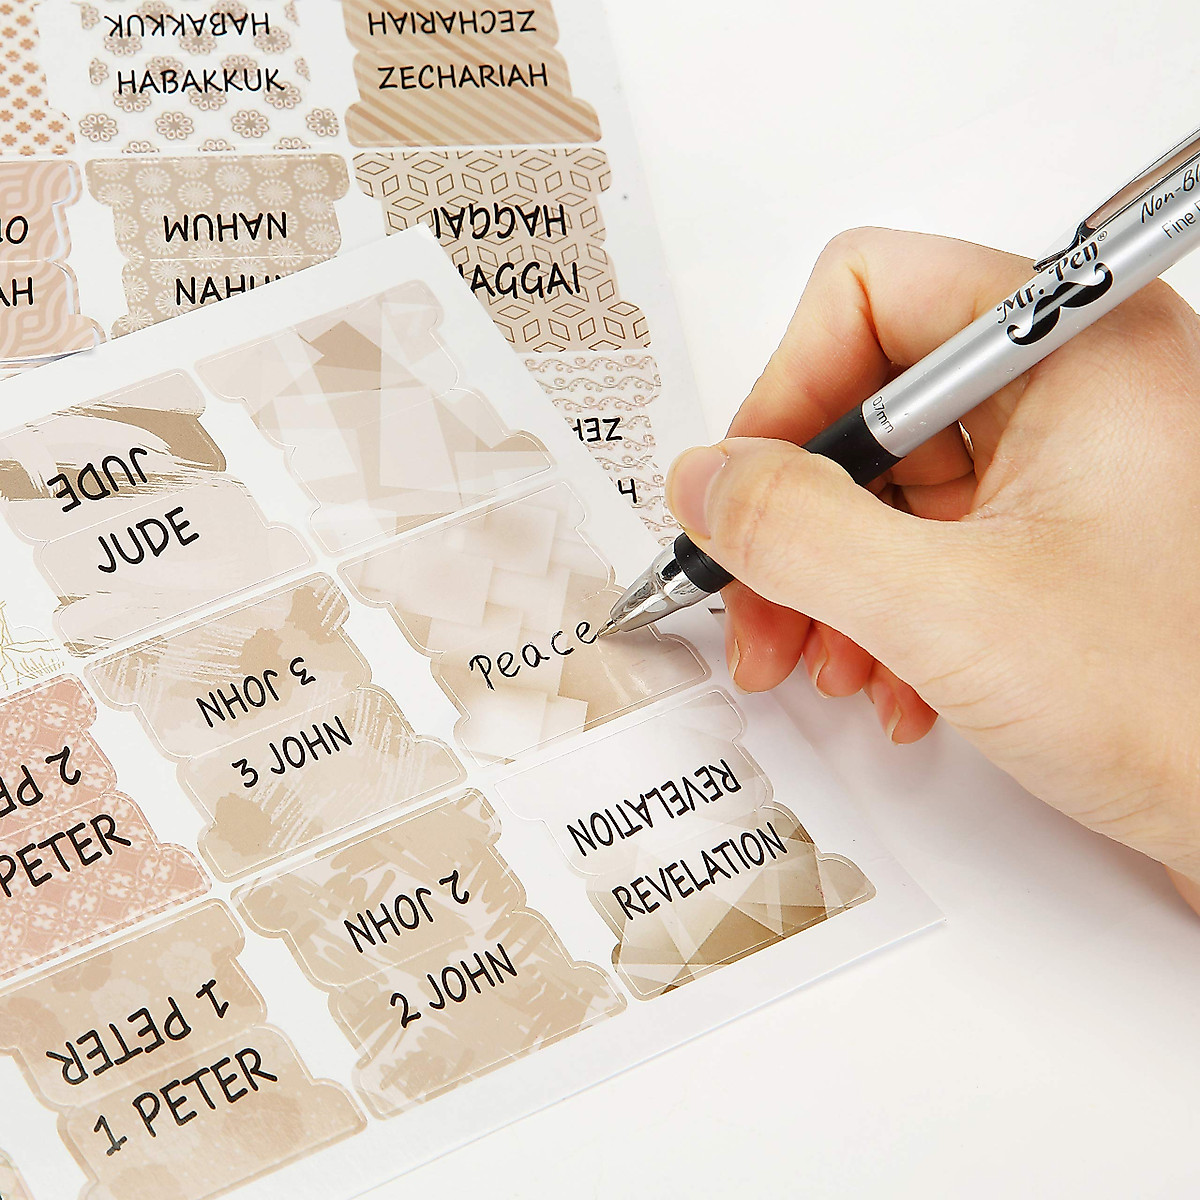 HABAKKUK
HABAKKUK
ZECHARIAH
ZECHARIAH
NAHUM
HAGGAI
HAGGAI
JUDE
JUDE
3 JOHN
3 JOHN
Peace
REVELATION
REVELATION
2 JOHN
2 JOHN
PETER
1 PETER
1 PETER
Mr. Pen®
0.7mm